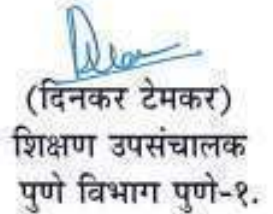 (दिनकर टेमकर)
शिक्षण उपसंचालक
पुणे विभाग पुणे-१.